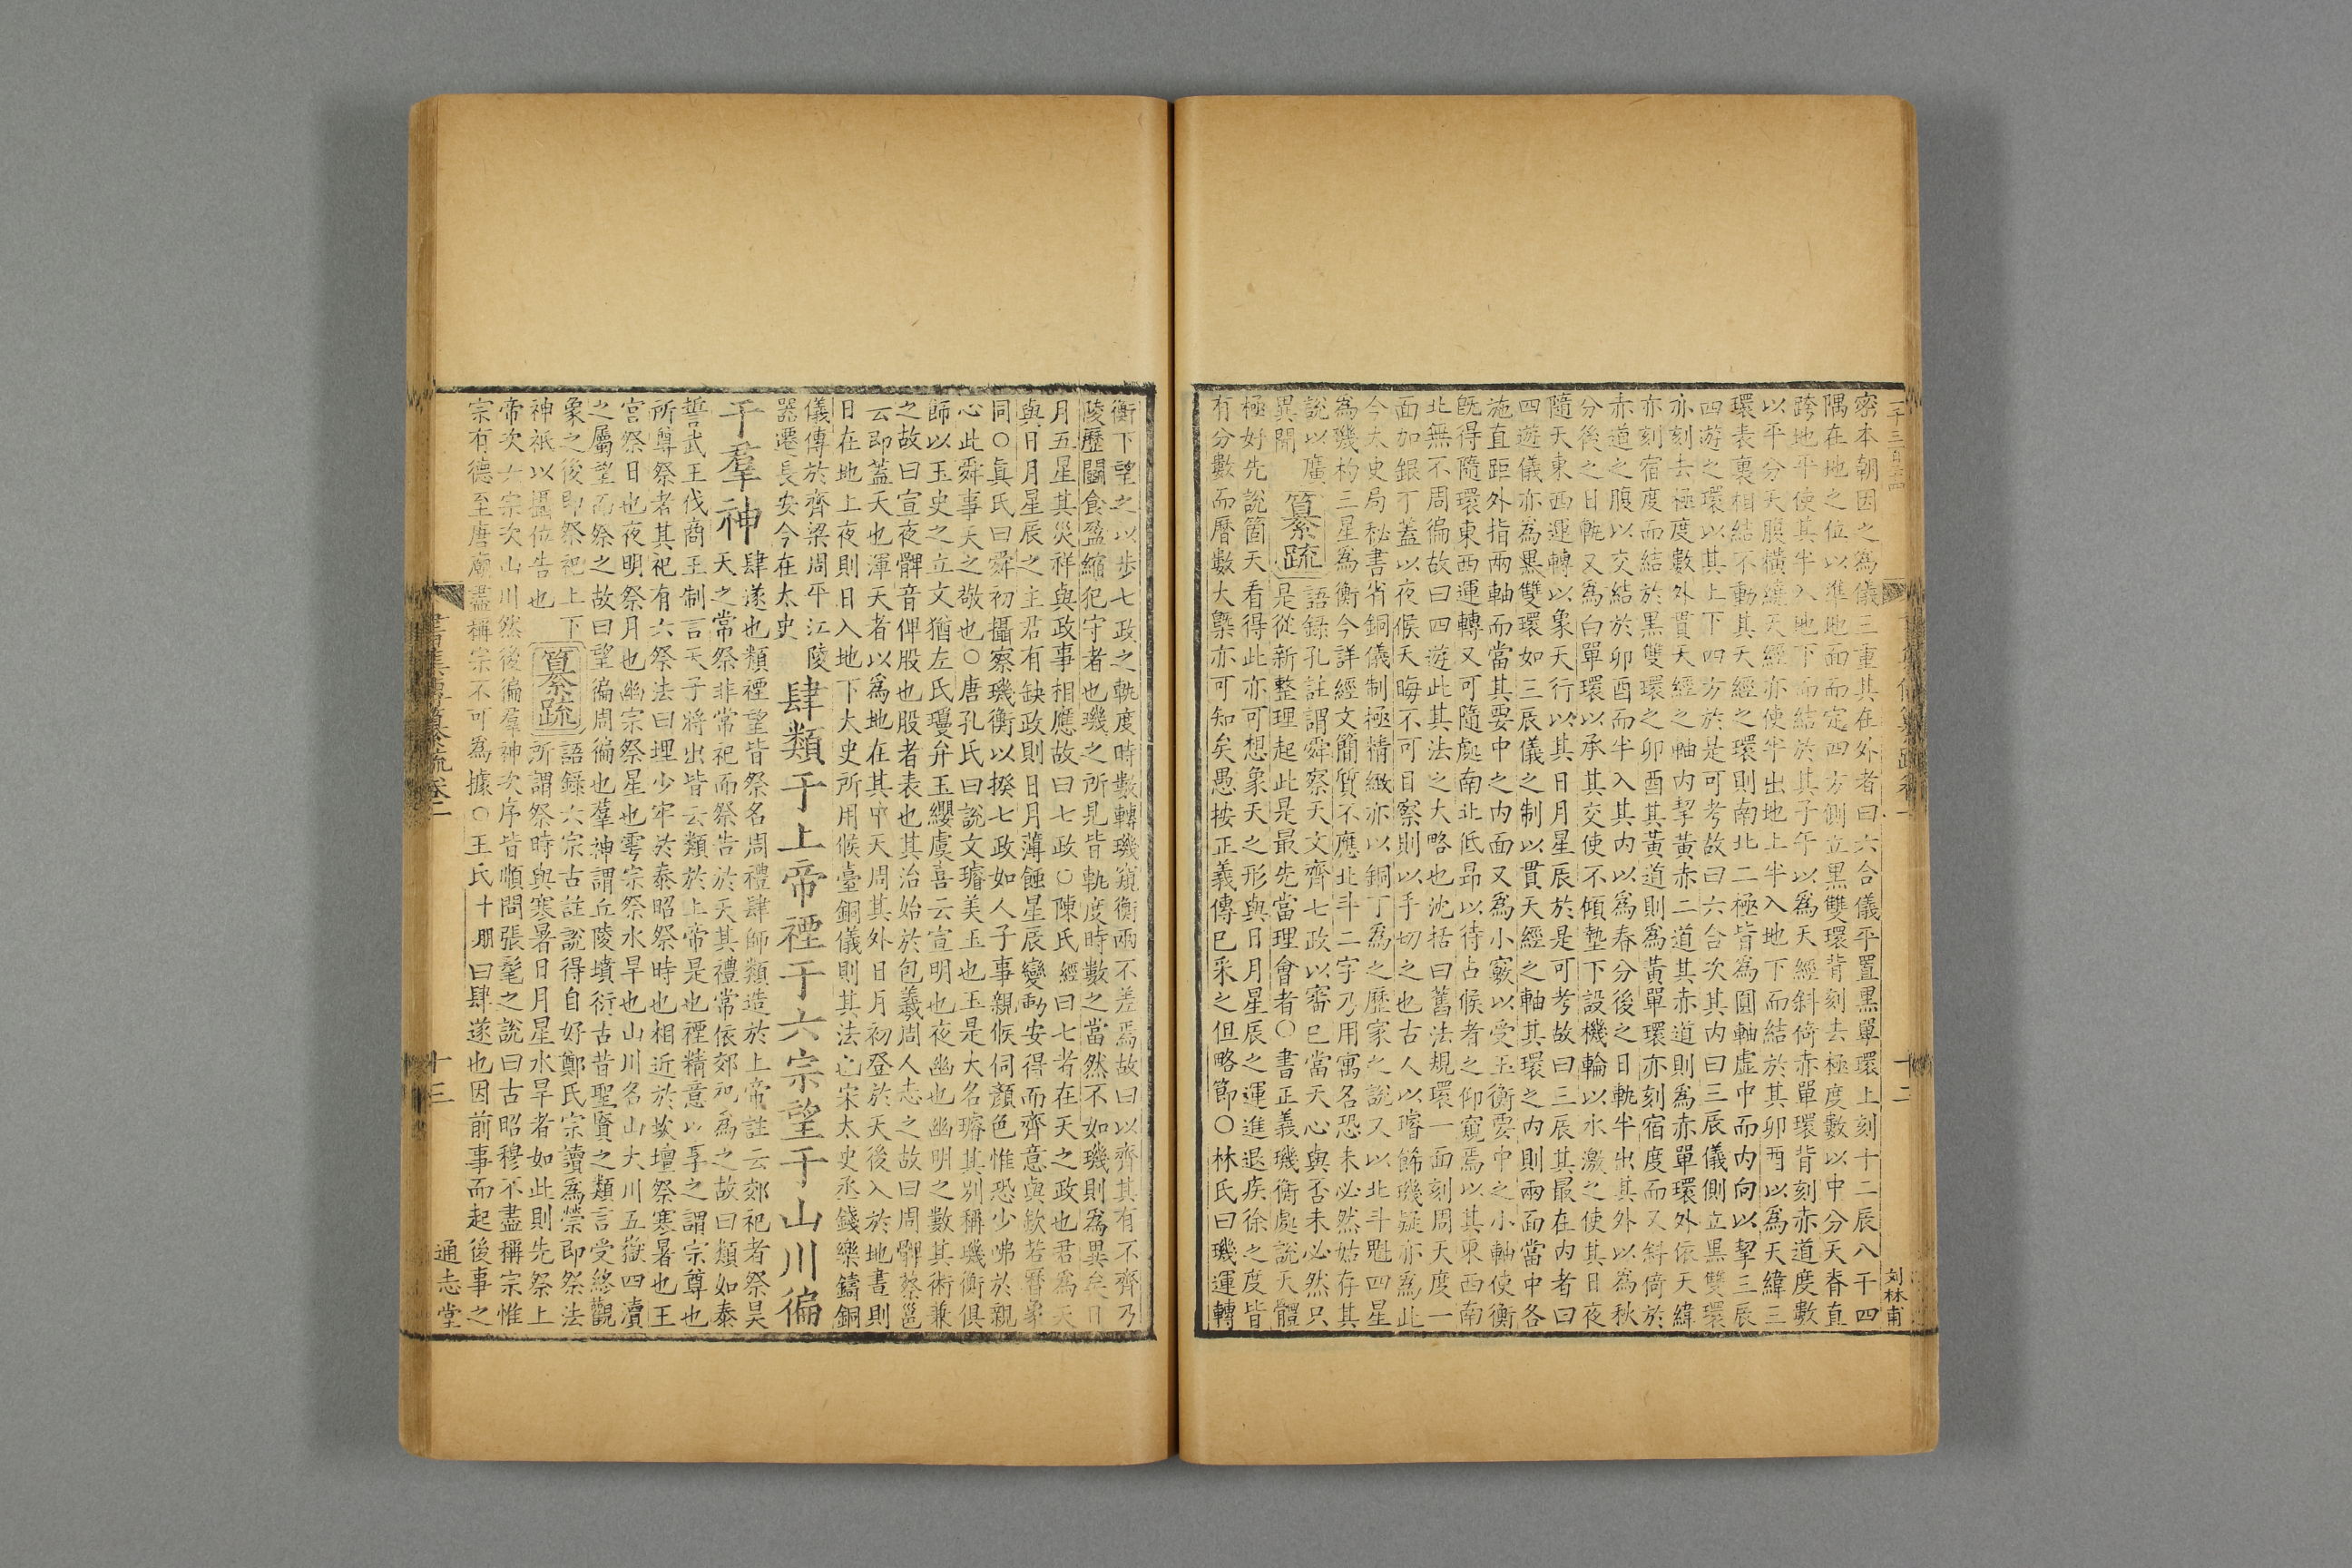 密本朝因之為儀三重其在外者曰六合儀平置黒單環上刻十二辰八干四
隅在地之位以準地面而定四方側立黒雙環背刻去極度數以中分天脊直
跨地平使其半入地下而結於其子午以為天經斜倚赤單環背刻赤道度數
以平分天腹橫繞天經亦使半出地上半入地下而結於其卯酉以為天緯三
環表裏相結不動其天經之環則南北二極皆為圓軸虛中而内向以挈三辰
四游之環以其上下四方於是可考故曰六合次其内曰三辰儀側立黒雙環
亦刻去極度數外貫天經之軸内挈黃赤二道其赤道則為赤單環外依天緯
亦刻宿度而結於黒雙環之卯酉其黃道則為黃單環亦刻宿度而又斜倚於
赤道之腹以交結於卯酉而半入其内以為春分後之日軌半出其外以為秋
分後之日軌又為白單環以承其交使不傾墊下設機輪以水激之使其日夜
隨天東西運轉以象天行以其日月星辰於是可考故曰三辰其最在内者曰
四遊儀亦為黒雙環如三辰儀之制以貫天經之軸其環之内則兩面當中各
施直距外指兩軸而當其要中之内面又為小竅以受玉衡要中之小軸使衡
既得隨環東西運轉又可隨處南北低昂以待占候者之仰窺焉以其東西南
北無不周徧故曰四遊此其法之大略也沈括曰舊法規環一面刻周天度一
面加銀丁蓋以夜候天晦不可目察則以手切之也古人以璿飾璣疑亦為此
今太史局秘書省銅儀制極精緻亦以銅丁為之歷家之說又以北斗魁四星
為璣杓三星為衡今詳經文簡質不應北斗二字乃用寓名恐未必然姑存其
說以廣
異聞
纂疏
語錄孔註謂舜察天文齊七政以審已當天心與否未必然只
是從新整理起此是最先當理會者○書正義璣衡處說天體
極好先說箇天看得此亦可想象天之形與日月星辰之運進退疾徐之度皆
有分數而曆數大槩亦可知矣愚按正義傳已采之但略節○林氏曰璣運轉
十二
刘林甫
衡下望之以步七政之軌度時數轉璣窺衡兩不差焉故曰以齊其有不齊乃
陵歷鬭食盈縮犯守者也璣之所見皆軌度時數之當然不如璣則為異矣日
月五星其災祥與政事相應故曰七政○陳氏經曰七者在天之政也君為天
與日月星辰之主君有缺政則日月薄蝕星辰變動安得而齊意與欽若曆象
同○真氏曰舜初攝察璣衡以揆七政如人子事親候伺顏色惟恐少咈於親
心此舜事天之敬也○唐孔氏曰說文璿美玉也玉是大名璿其別稱璣衡俱
師以玉史之立文猶左氏瓊弁玉纓虞喜云宣明也夜幽也幽明之數其術兼
之故曰宣夜髀音俾股也股者表也其治始於包羲周人志之故曰周髀蔡邕
云即蓋天也渾天者以為地在其中天周其外日月初登於天後入於地晝則
日在地上夜則日入地下大史所用候臺銅儀則其法也宋太史丞錢樂鑄銅
儀傳於齊梁周平江陵
器遷長安今在太史
肆類于上帝禋于六宗望于山川徧
于羣神
肆遂也類禋望皆祭名周禮肆師類造於上帝註云郊祀者祭昊
天之常祭非常祀而祭告於天其禮常依郊祀為之故曰類如泰
誓武王伐商王制言天子將出皆云類於上帝是也禋精意以享之謂宗尊也
所尊祭者其祀有六祭法曰埋少牢於泰昭祭時也相近於坎壇祭寒暑也王
宮祭日也夜明祭月也幽宗祭星也雩宗祭水旱也山川名山大川五嶽四瀆
之屬望而祭之故曰望徧周徧也羣神謂丘陵墳衍古昔聖賢之類言受終觀
象之後即祭祀上下
神祇以攝位告也
纂疏
語録六宗古註說得自好鄭氏宗讀為禜即祭法
所謂祭時與寒暑日月星水旱者如此則先祭上
帝次六宗次山川然後徧羣神次序皆順問張髦之說曰古昭穆不盡稱宗惟
宗有德至唐廟盡稱宗不可為據○王氏十朋曰肆遂也因前事而起後事之
十三
通志堂